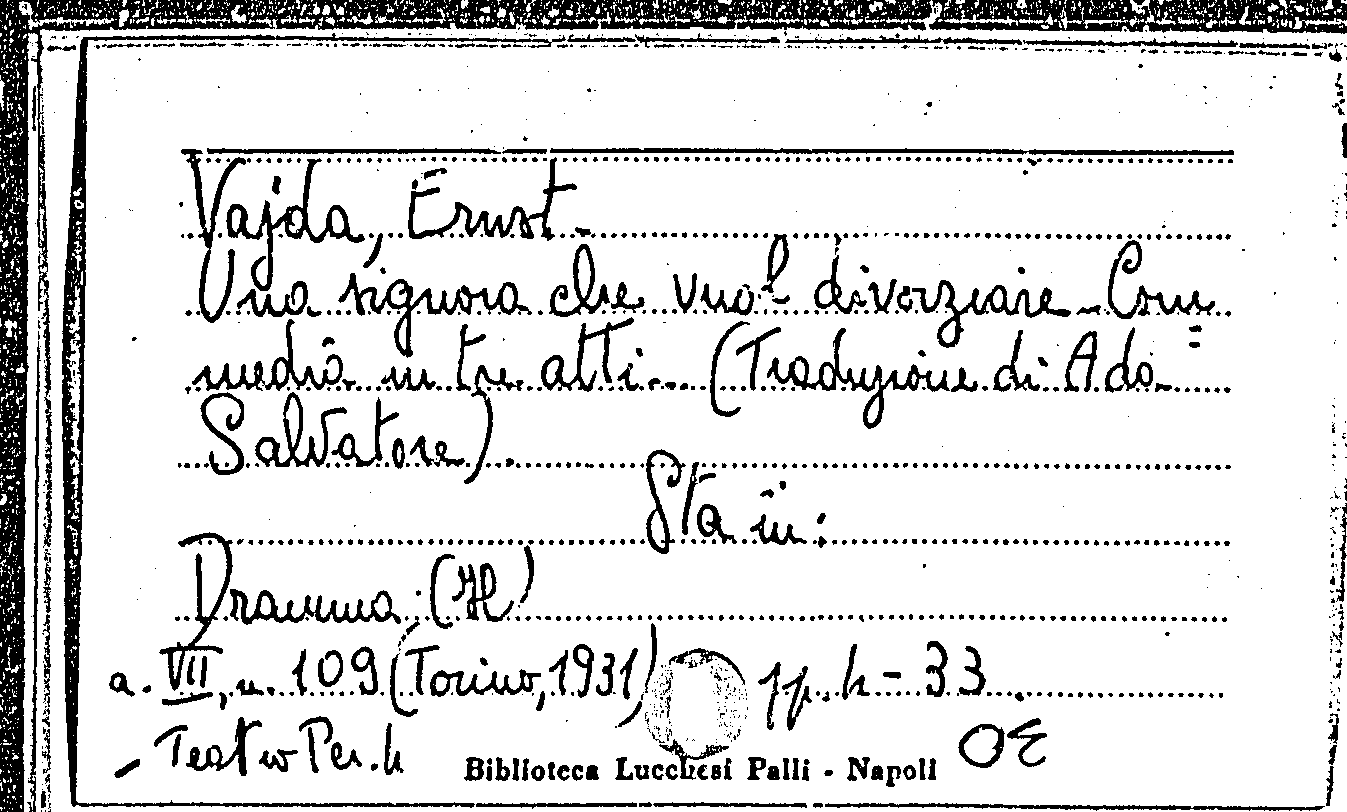 Vajda, Ernst.
Una signora che vuol divorziare. Com=
media in tre atti... (Traduzione di Ada
Salvatore).
Sta in:
Dramma (Il)
a. VII, n. 109 (Torino, 1931) pp. 4-33.
- Teatro Per. 4
Biblioteca Lucchesi Palli - Napoli